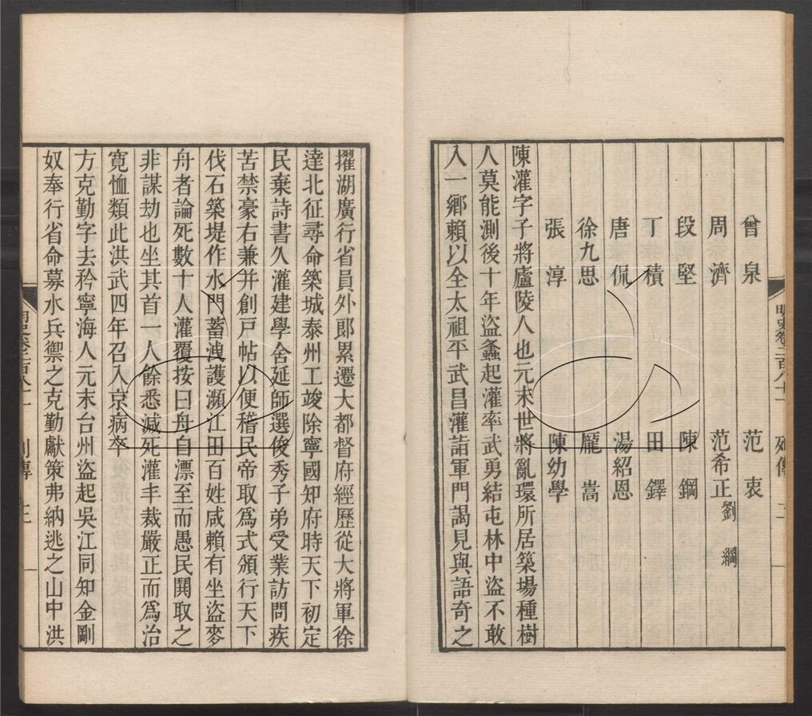 曾泉 范衷
周濟 范希正 劉綱
段堅 陳鋼
丁積 田鐸
唐侃 湯紹恩
徐九思 龐嵩
張淳 陳幼學
陳灌字子將廬陵人也元末世將亂環所居築場種樹
人莫能測後十年盜蠭起灌率武勇結屯林中盜不敢
入一鄉賴以全太祖平武昌灌詣軍門謁見與語奇之
擢湖廣行省員外郎累遷大都督府經歷從大將軍徐
達北征尋命築城泰州工竣除寧國知府時天下初定
民棄詩書久灌建學舍延師選俊秀子弟受業訪問疾
苦禁豪右兼并創戸帖以便稽民帝取爲式頒行天下
伐石築堤作水門蓄洩護瀕江田百姓咸賴有坐盜麥
舟者論死數十人灌覆按曰舟自漂至而愚民鬨取之
非謀劫也坐其首一人餘悉減死灌丰裁嚴正而爲治
寬恤類此洪武四年召入京病卒
方克勤字去矜寧海人元末台州盜起吳江同知金剛
奴奉行省命募水兵禦之克勤獻策弗納逃之山中洪